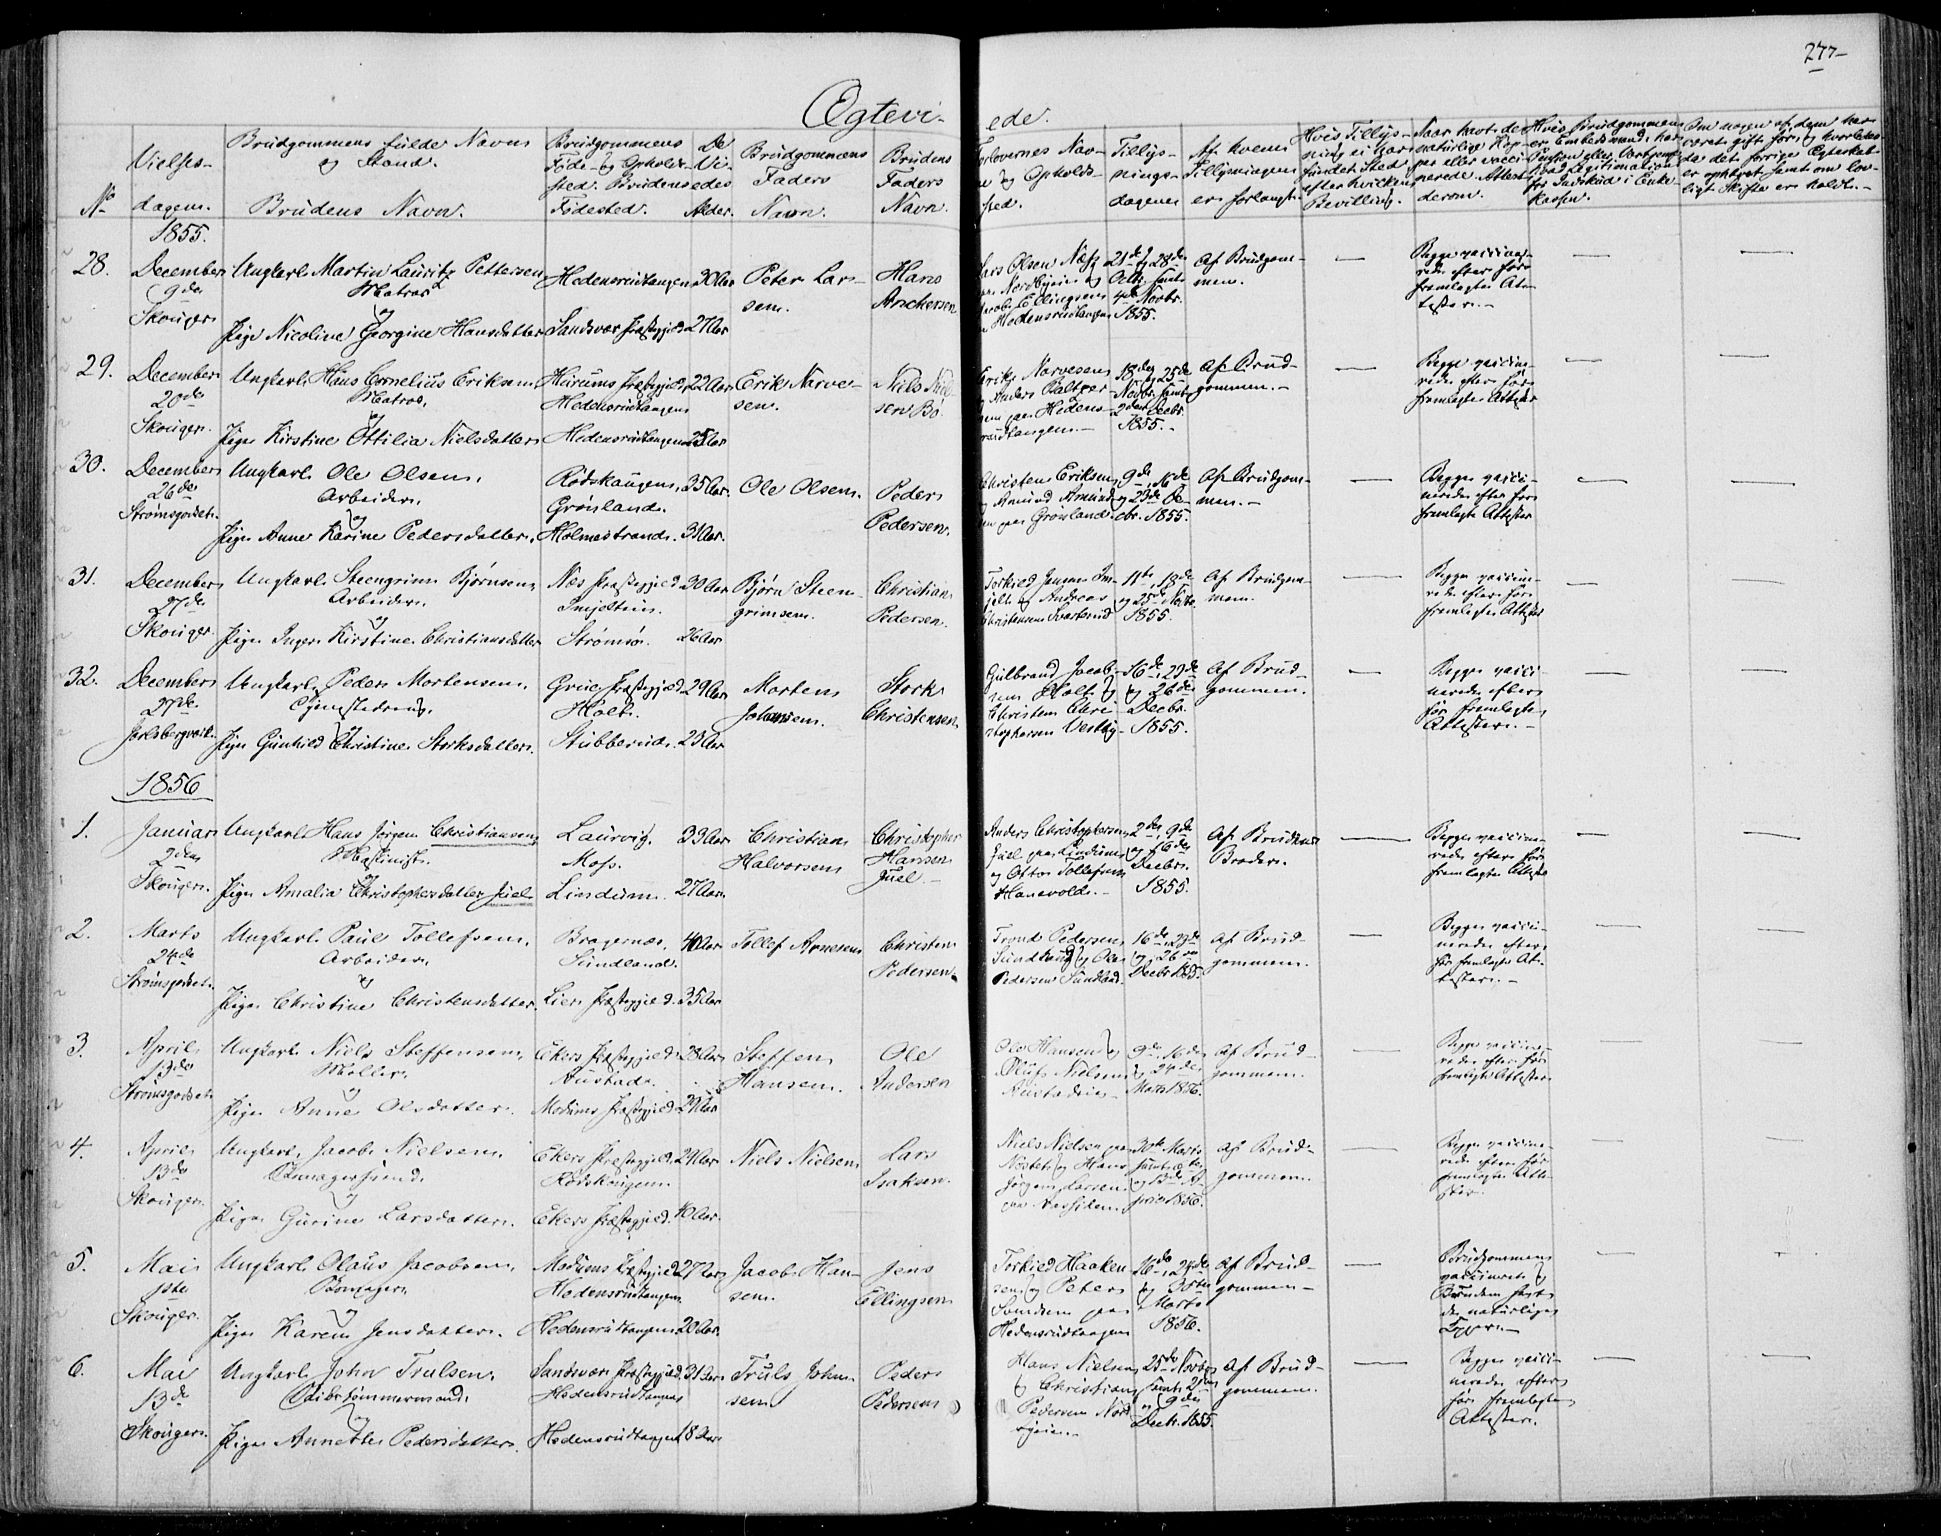 277-
Ægtevi- ede.
No
Vielses-
dagen.
Brudgommens fulde Navn
og Stand.
Brudens Navn.
Brudgommens
Føde- og Opholds-
sted. Brudens
Fødested.
De
Vi-
edes
Alder.
Brudgommens
Faders
Navn.
Brudens
Faders
Navn.
Forlovernes Nav-
ne og Opholds-
sted.
Tillys-
nings-
dagene
Af hvem
Tillysningen
er forlangt.
Hvis Tillys-
ning ei har
fundet Sted
efter hvilken
Bevilling.
1855.
28.
December
9de
Skouger.
Ungkarl Martin Lauritz Pettersen
Matros
og
Pige Nicoline Georgine Hansdatter
Hedensrudtangen
Sandsvær Præstegjeld
30 Aar
27 Aar
Peter Lar-
sen.
Hans
Anchersen
Lars Olsen Næss
paa Nordbyeien og
Jacob Ellingsen
Hedensrudtangen
21de og 28de
Octbr. samt
4de Novbr.
1855.
Af Brudgom-
men.
—
Begge vaccine-
rede efter fore
fremlagte At-
tester. —
—
—
29.
December
20de
Skouger.
Ungkarl Hans Cornelius Eriksen
Matros,
og
Pige Kirstine Ottilia Nielsdatter
Heirums Præstegjeld
Hedensrudtangen
Hedensrudtangen
22 Aar
25 Aar
Erik Narve-
sen.
Niels Niel-
sen Bø
Erik Narvesen
og Anders Baltzer-
sen paa Hedens-
rudtangen. —
18de og 25de
Novbr. samt
2den Decbr.
1855. —
Af Brud-
gommen. —
—
Begge vaccine-
rede efter fore
fremlagte Attester
—
—
30.
December
26de
Strømsgodset.
Ungkarl Ole Olsen,
Arbeider,
og
Pige Anne Karine Pedersdatter,
Rødskaugen,
Grønland.
Holmestrand.
35 Aar.
31 Aar.
Ole Olsen.
Peder
Pedersen.
Christen Eriksen
og Amund Amund-
sen paa Grønland.
9de, 16de
og 23de De-
cbr. 1855.
Af Brudgom-
men. —
—
Begge vacci-
nerede efter fore
fremlagte Attester
—
—
31.
December
27de
Skouger.
Ungkarl Steengrim Bjørnsen,
Arbeider,
og
Pige Inger Kirstine Christiansdatter
Næs Præstegjeld
Strømsø.
30 Aar
26 Aar
Bjørn Steen-
grimsen.
Christian
Pedersen.
Torkild Jensen
og Andreas
Christensen Svartsrud
11te, 18de
og 25de Novbr.
1855.
Af Brudgom-
men.
—
Begge vaccine-
rede efter fore
fremlagte Attester
—
—
32.
December
27de
Jarlsbergværk.
Ungkarl Peder Mortensen,
og
Pige Gunhild Christine Storksdatter.
Grue Præstegjeld
Holt.
Stubberud.
29 Aar
23 Aar
Morten
Johansen.
Stork
Christensen
Gulbrand Jacob-
sen Holt og
Christen Chri-
stophersen Vestby
16de, 23de
og 26de
Decbr.
1855.
Af Brud-
gommen.
—
Begge vacci-
nerede efter
før fremlagte
Attester. —
—
—
1856
1.
Januar
2den
Skouger.
Ungkarl Hans Jørgen Christiansen,
Maskinist.
og
Pige Amalia Christophersdatter Juel
Laurvig.
Moss.
Lindum.
33 Aar.
27 Aar.
Christian
Halvorsen
Christopher
Hansen
Juel —
Anders Christophersen
Juel paa Lindum
og Otto Tollefsen
Hanevold. —
2den, 9de
og 16de
Decbr.
1855.
Af Brudens
Broder.
—
Begge vaccine-
rede efter før
fremlagte Attester
—
—
2.
Marts
24de
Strømsgodset.
Ungkarl Paul Tollefsen,
Arbeider,
og
Pige Christine Christensdatter
Bragernæs,
Sundland.
Lier Præstegjeld.
40 Aar
35 Aar
Tollef Arnesen
Christen
Pedersen.
Trond Pedersen
Sundhaug og Ole
Pedersen Sundland.
16de, 23de
og 26de
Decbr 1855.
Af Brud-
gommen.
—
Begge vacci-
nerede efter
før fremlagte At-
tester. —
—
—
3.
April
13de
Strømsgodset.
Ungkarl Niels Steffensen,
Møller.
og
Pige Anne Olsdatter.
Ekers Præstegjeld
Austad.
Modums Præstegjeld
28 Aar
29 Aar
Steffen
Hansen.
Ole
Andersen
Ole Hansen og
Oluf Nielsen
Austadeie —
9de, 16de
og 24de
Marts 1856.
Af Brud-
gommen.
—
Begge vaccine-
rede efter før
fremlagte Attester
—
—
4.
April
13de
Skouger.
Ungkarl Jacob Nielsen,
og
Pige Gurine Larsdatter.
Ekers Præstegjeld
Rødskougen.
Ekers Præstegjeld.
29 Aar
40 Aar.
Niels Nielsen
Lars
Isaksen.
Niels Nielsen paa
Nøstet og Hans
Jørgen Larsen
30te Marts
samt 6te
og 13de A-
pril 1856.
Af Brud-
gommen.
—
Begge vaccine-
rede efter før
fremlagte Atte-
ster.
—
—
5.
Mai
1ste
Skouger.
Ungkarl Olaus Jacobsen,
og
Pige Karen Jensdatter.
Modums Præstegjeld
Hedensrudtangen
Hedensrudtangen
27 Aar
20 Aar.
Jacob Han-
sen.
Jens
Ellingsen
Torkild Haaken-
sen og Peter
paa
Hedensrudtangen
16de, 24de
og 30te
Marts
1856.
Af Brud-
gommen —
Brudgommen
vaccineret og
Bruden havt
de naturlige
Kopper. —
—
6.
Mai
13de
Skouger.
Ungkarl John Trulsen,
Skibstømmermand,
og
Pige Annette Pedersdatter.
Sandsvær Præstegjeld
Hedensrudtangen
Hedensrudtangen
31 Aar
18 Aar
Truls John-
sen
Peder
Pedersen
Hans Nielsen
og Christian
Pedersen Nord-
byeien —
25de Novbr
samt 2den
og 9de
Decbr. 1855.
Af Brud-
gommen.
—
Begge vacci-
nerede efter
før fremlagte
Attester.
—
—